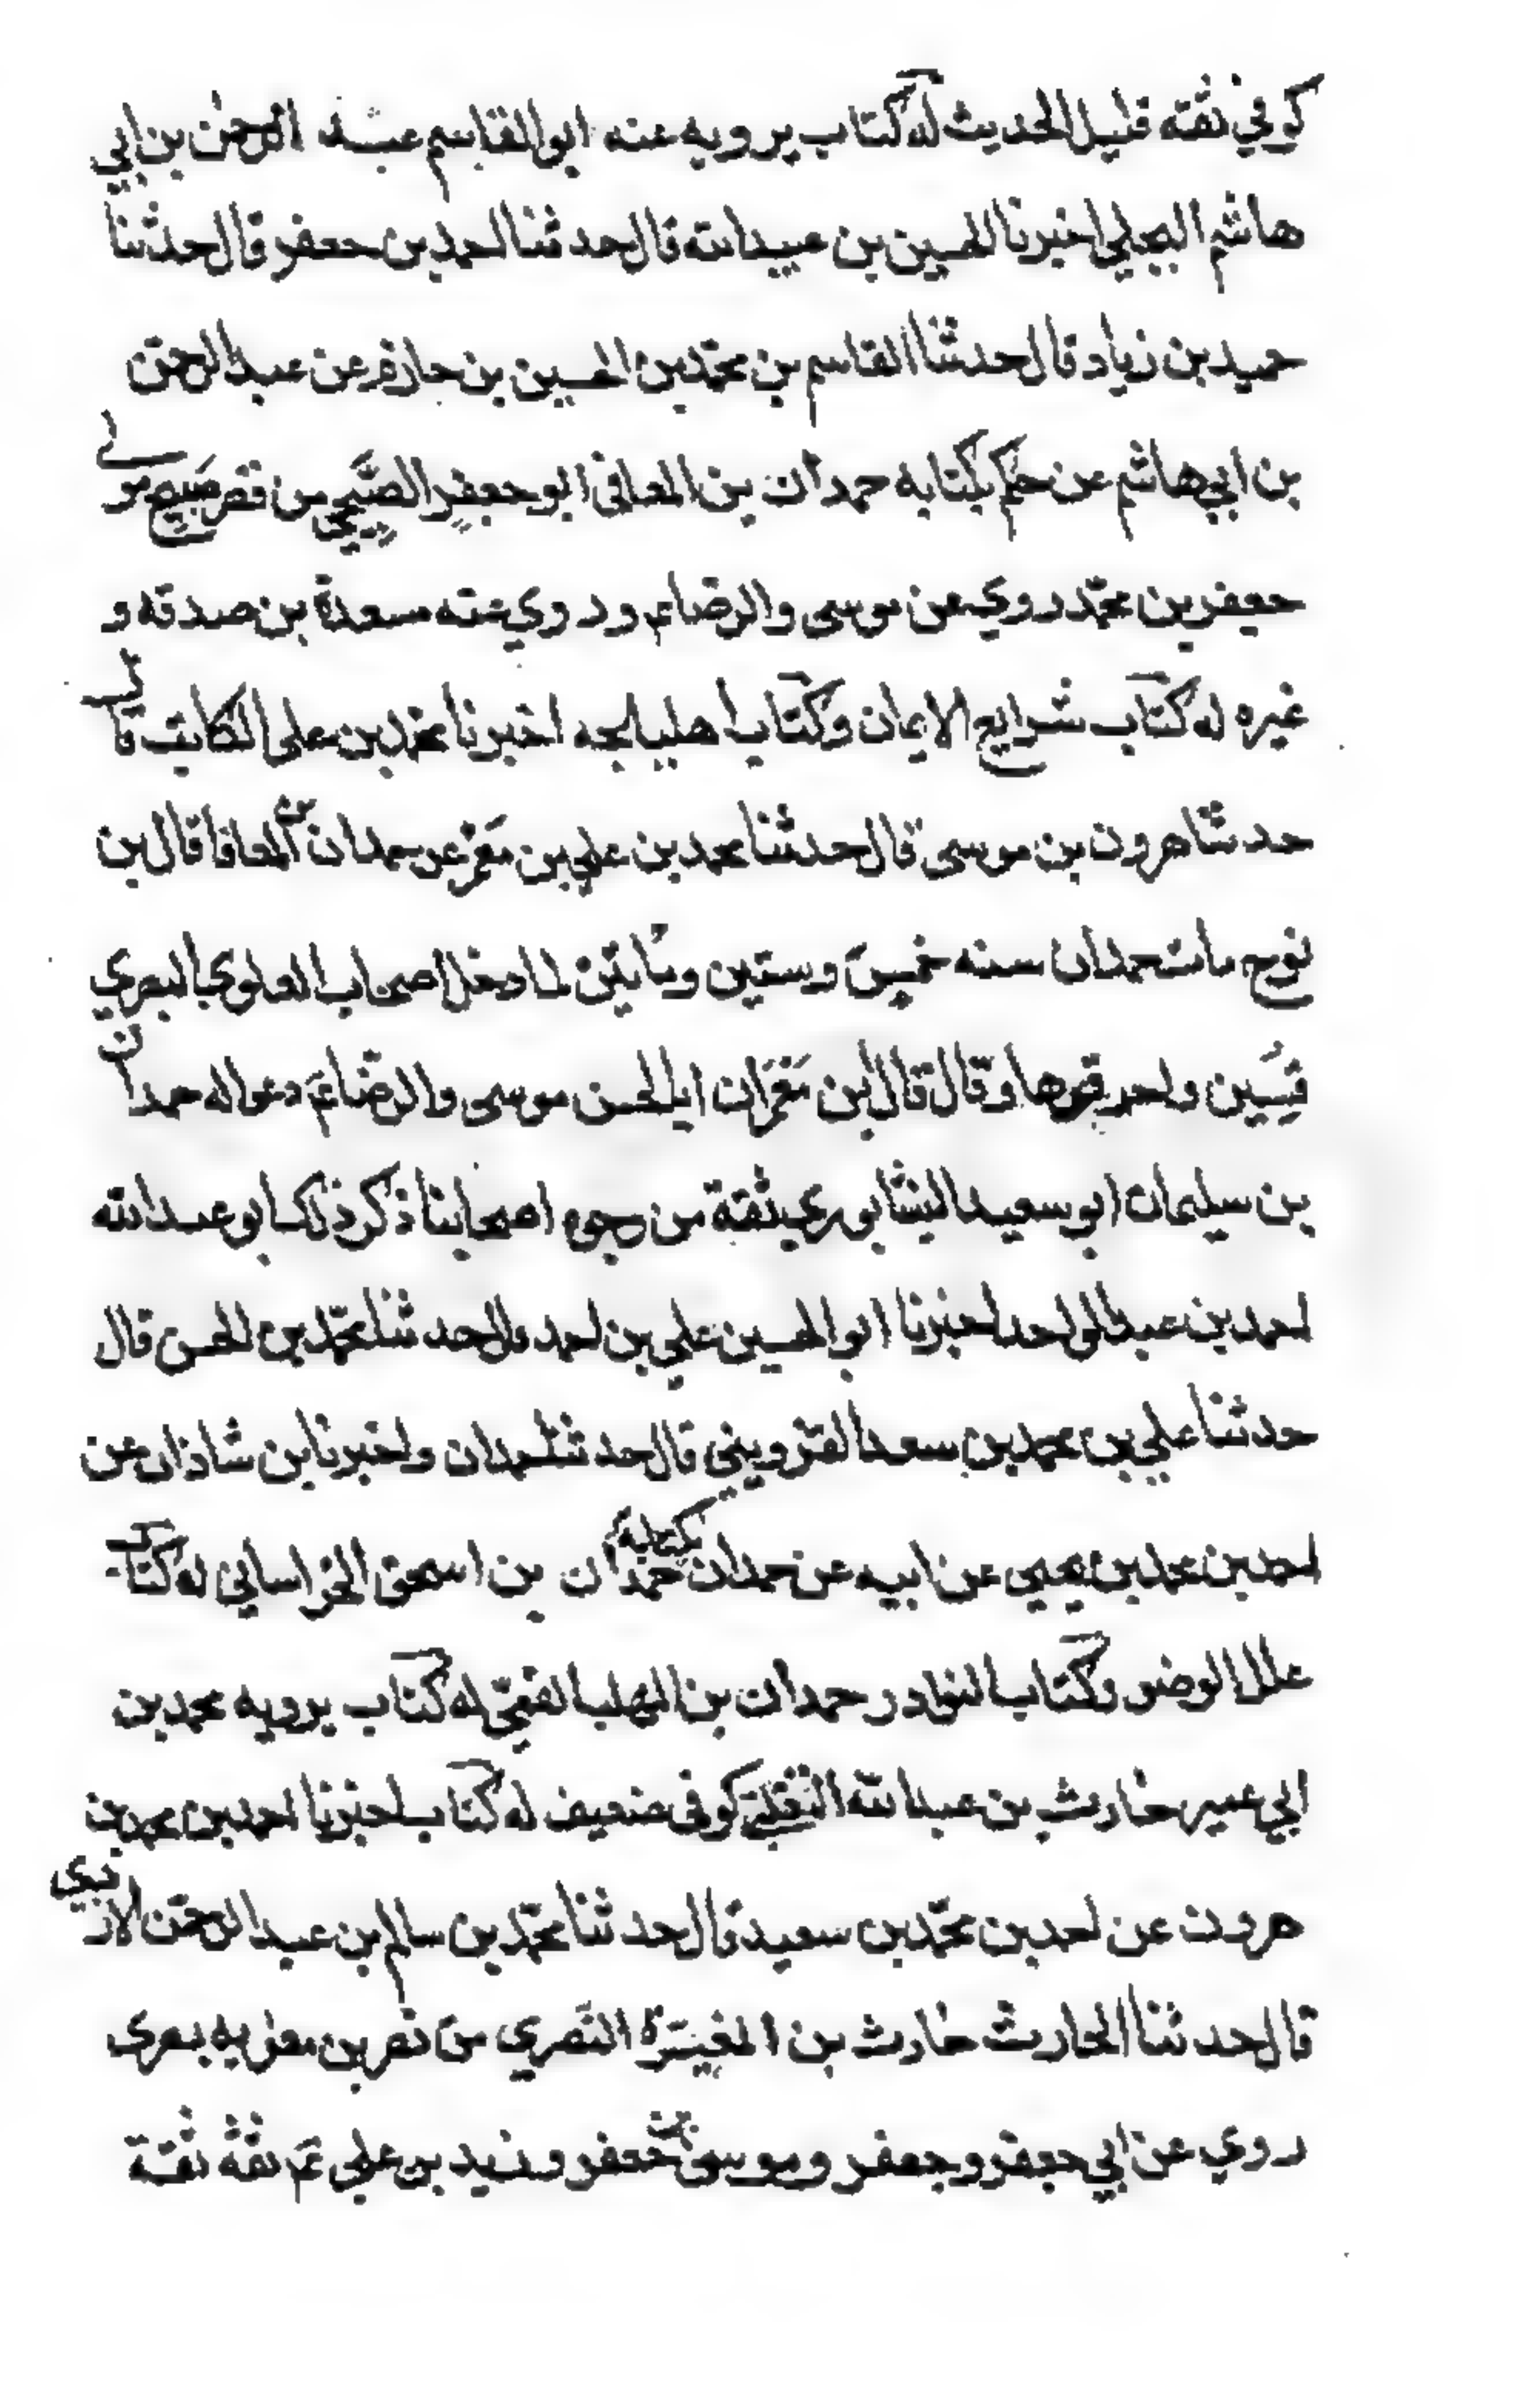 كوفي ثقة قليل الحديث له كتاب يرويه عنه ابو القاسم عبد الرحمن بن ابي
هاشم البجلي اخبرنا الحسين بن عبيد الله قال حدثنا احمد بن جعفر قال حدثنا
حميد بن زياد قال حدثنا القاسم بن محمد بن الحسين بن حازم عن عبد الرحمن
بن ابي هاشم عن حكم بكتابه حمدان بن المعافى ابو جعفر الصبيحي من قصر صبيح مولى
جعفر بن محمد روي عن موسى والرضا ع وروي عنه مسعدة بن صدقه و
غيره له كتاب شرايع الايمان وكتاب اهليلجه اخبرنا محمد بن علي الكاتب قال
حدثنا هرون بن موسى قال حدثنا محمد بن علي بن معمر عن حمدان بن المعافا قال بن
نوح مات حمدان سنه خمس وستين ومائتين لما دخل اصحاب العلوي البصري
قسين واحرقوها وقال قال بن معمر ان ابا الحسن موسى والرضا ع دعوا له حمدان
بن سليمان ابو سعيد النيشابوري ثقة من وجوه اصحابنا ذكر ذلك ابو عبد الله
احمد بن عبد الواحد اخبرنا ابو الحسين علي بن احمد قال حدثنا محمد بن الحسن قال
حدثنا علي بن محمد بن سعد القزويني قال حدثنا حمدان واخبرنا بن شاذان عن
احمد بن محمد بن يحيى عن ابيه عن حمدان بكتابه حمدان بن اسحق الخراساني له كتاب
علل الوضو وكتاب النوادر حمدان بن المهلب القمي له كتاب يرويه محمد بن
ابي عمير حارث بن عبد الله التغلبي كوفى ضعيف له كتاب اخبرنا احمد بن محمد بن
هرون عن احمد بن محمد بن سعيد قال حدثنا محمد بن سالم بن عبد الرحمن الازدي
قال حدثنا الحارث حارث بن المغيرة النصري من نصر بن معويه بصرى
روي عن ابي جعفر وجعفر وموسى بن جعفر وزيد بن علي ع ثقة ثقة